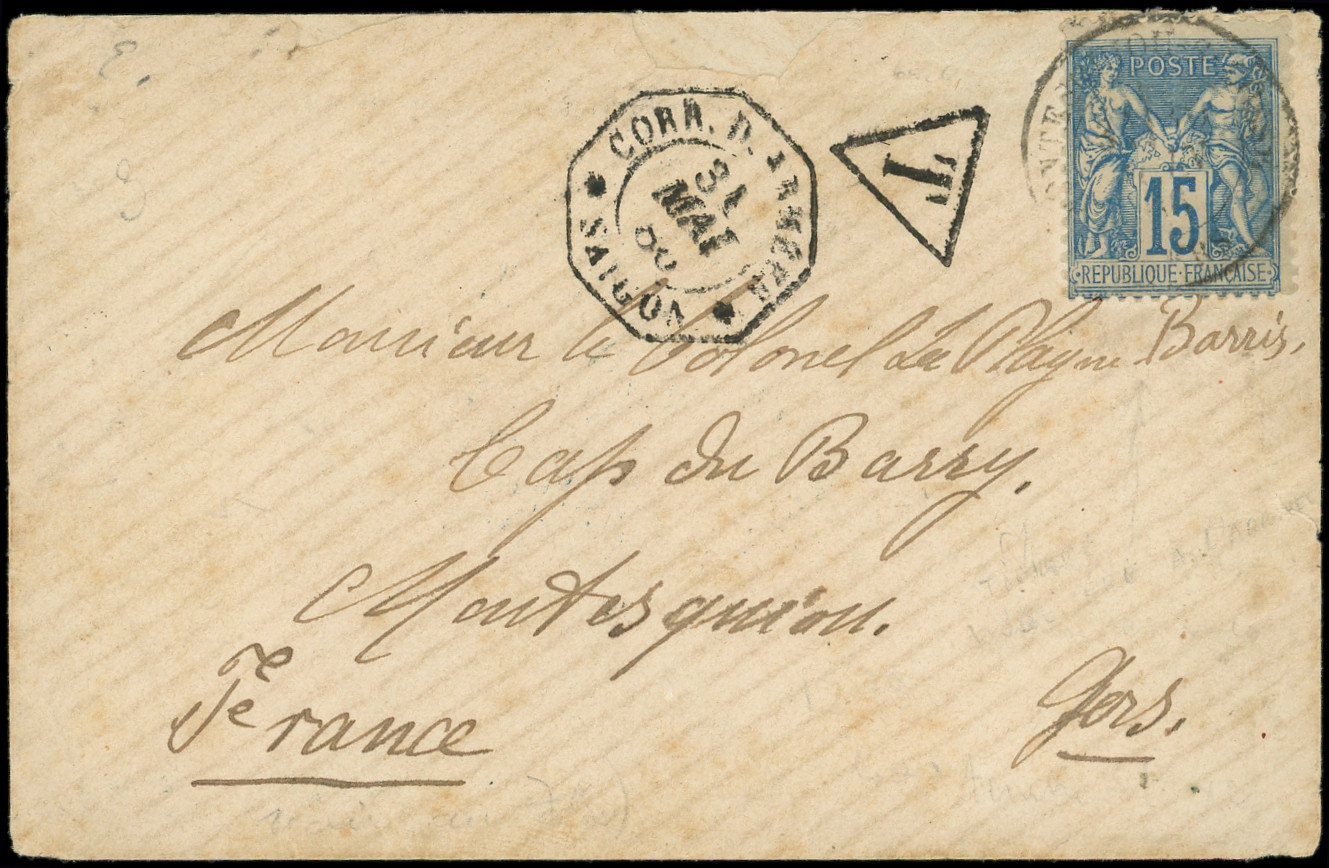 CORR. D. ARMEES
31
MAI
SAIGON
T
POSTE
15
REPUBLIQUE FRANÇAISE
Monsieur le Colonel La Plagne Barris,
Cap du Barry,
Montesquiou.
France
Gers.